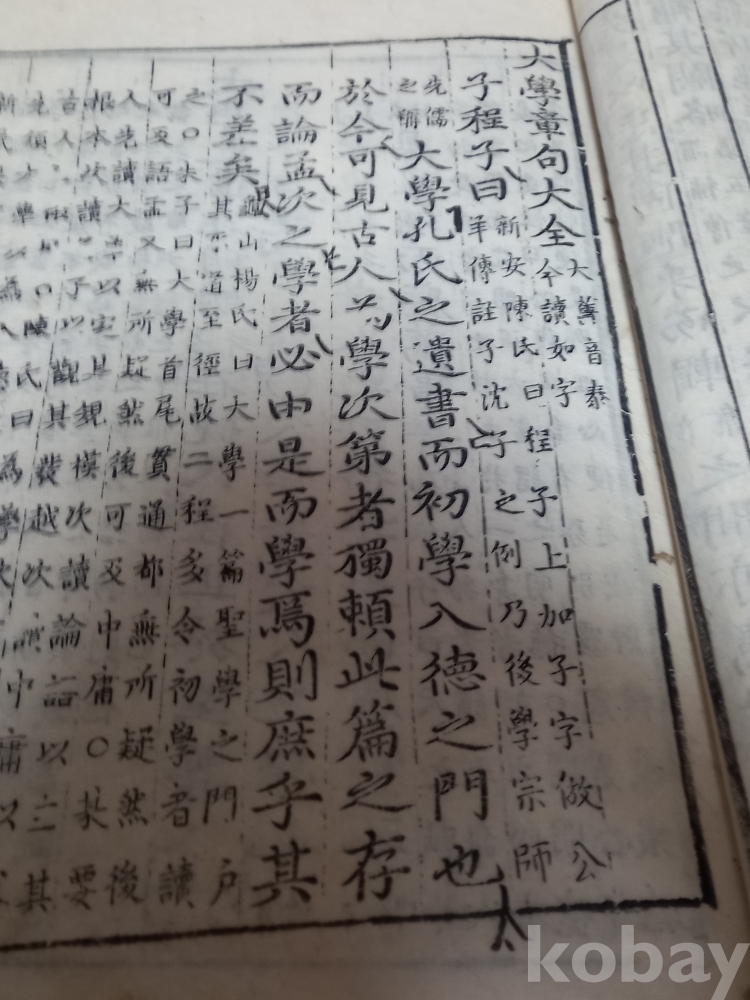 大學章句大全
大舊音泰
今讀如字
子程子曰
新安陳氏曰程子上加子字倣公
羊傳註子沈子之例乃後學宗師
先儒
之稱
大學孔氏之遺書而初學入德之門也
於今可見古人爲學次第者獨賴此篇之存
而論孟次之學者必由是而學焉則庶乎其
不差矣
龜山楊氏曰大學一篇聖學之門戶
其道至徑故二程多令初學者讀
之○朱子曰大學首尾貫通都無所疑然後
可及語孟又無所疑然後可及中庸○某要
人先讀大學以定其規模次讀論語以立其
根本次讀子以觀其發越次讀中庸以
古人
先須
kobay